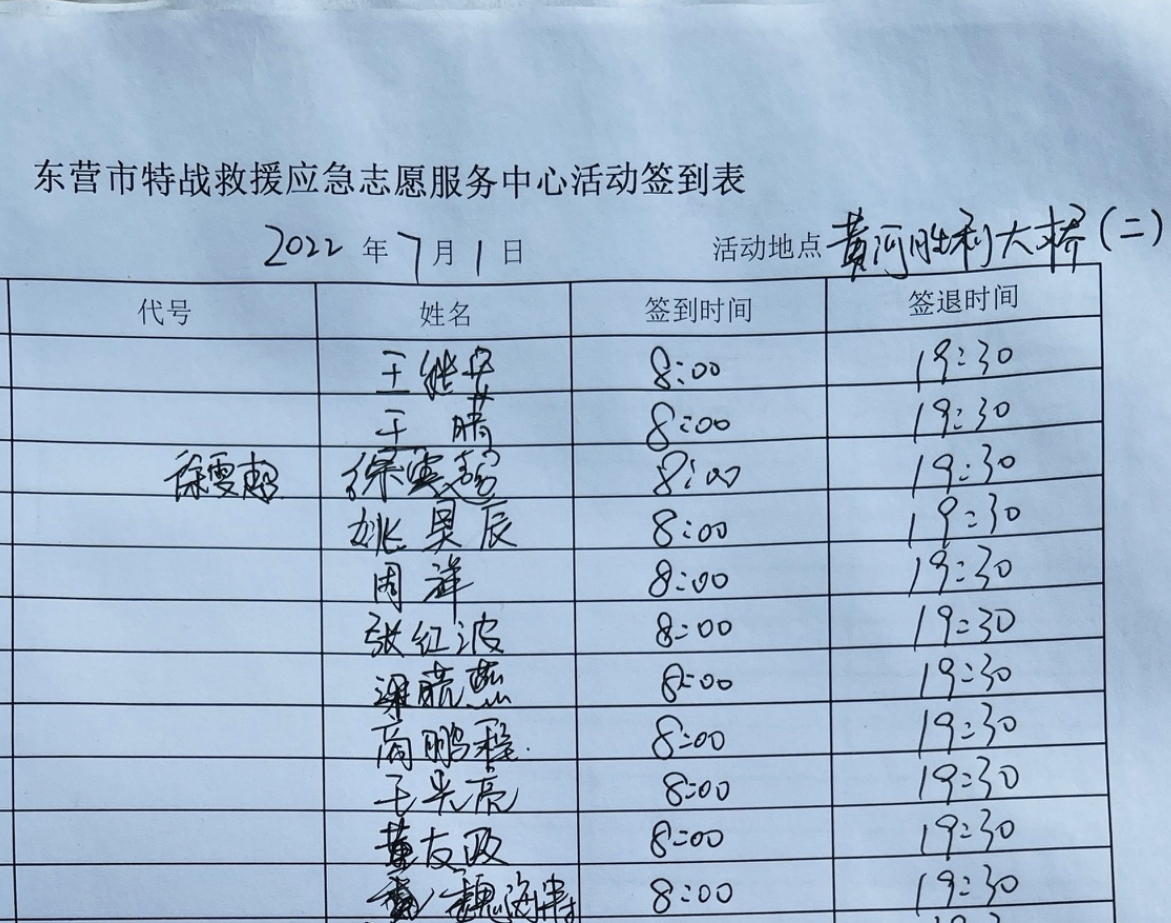 东营市特战救援应急志愿服务中心活动签到表
2022 年 7 月 1 日 活动地点 黄河胜利大桥(二)
代号 姓名 签到时间 签退时间
王继安 8:00 19:30
王晴 8:00 19:30
徐雯超 徐雯超 8:00 19:30
姚昊辰 8:00 19:30
周祥 8:00 19:30
张红波 8:00 19:30
梁晓燕 8:00 19:30
商鹏程 8:00 19:30
王光亮 8:00 19:30
董友政 8:00 19:30
魏海 8:00 19:30